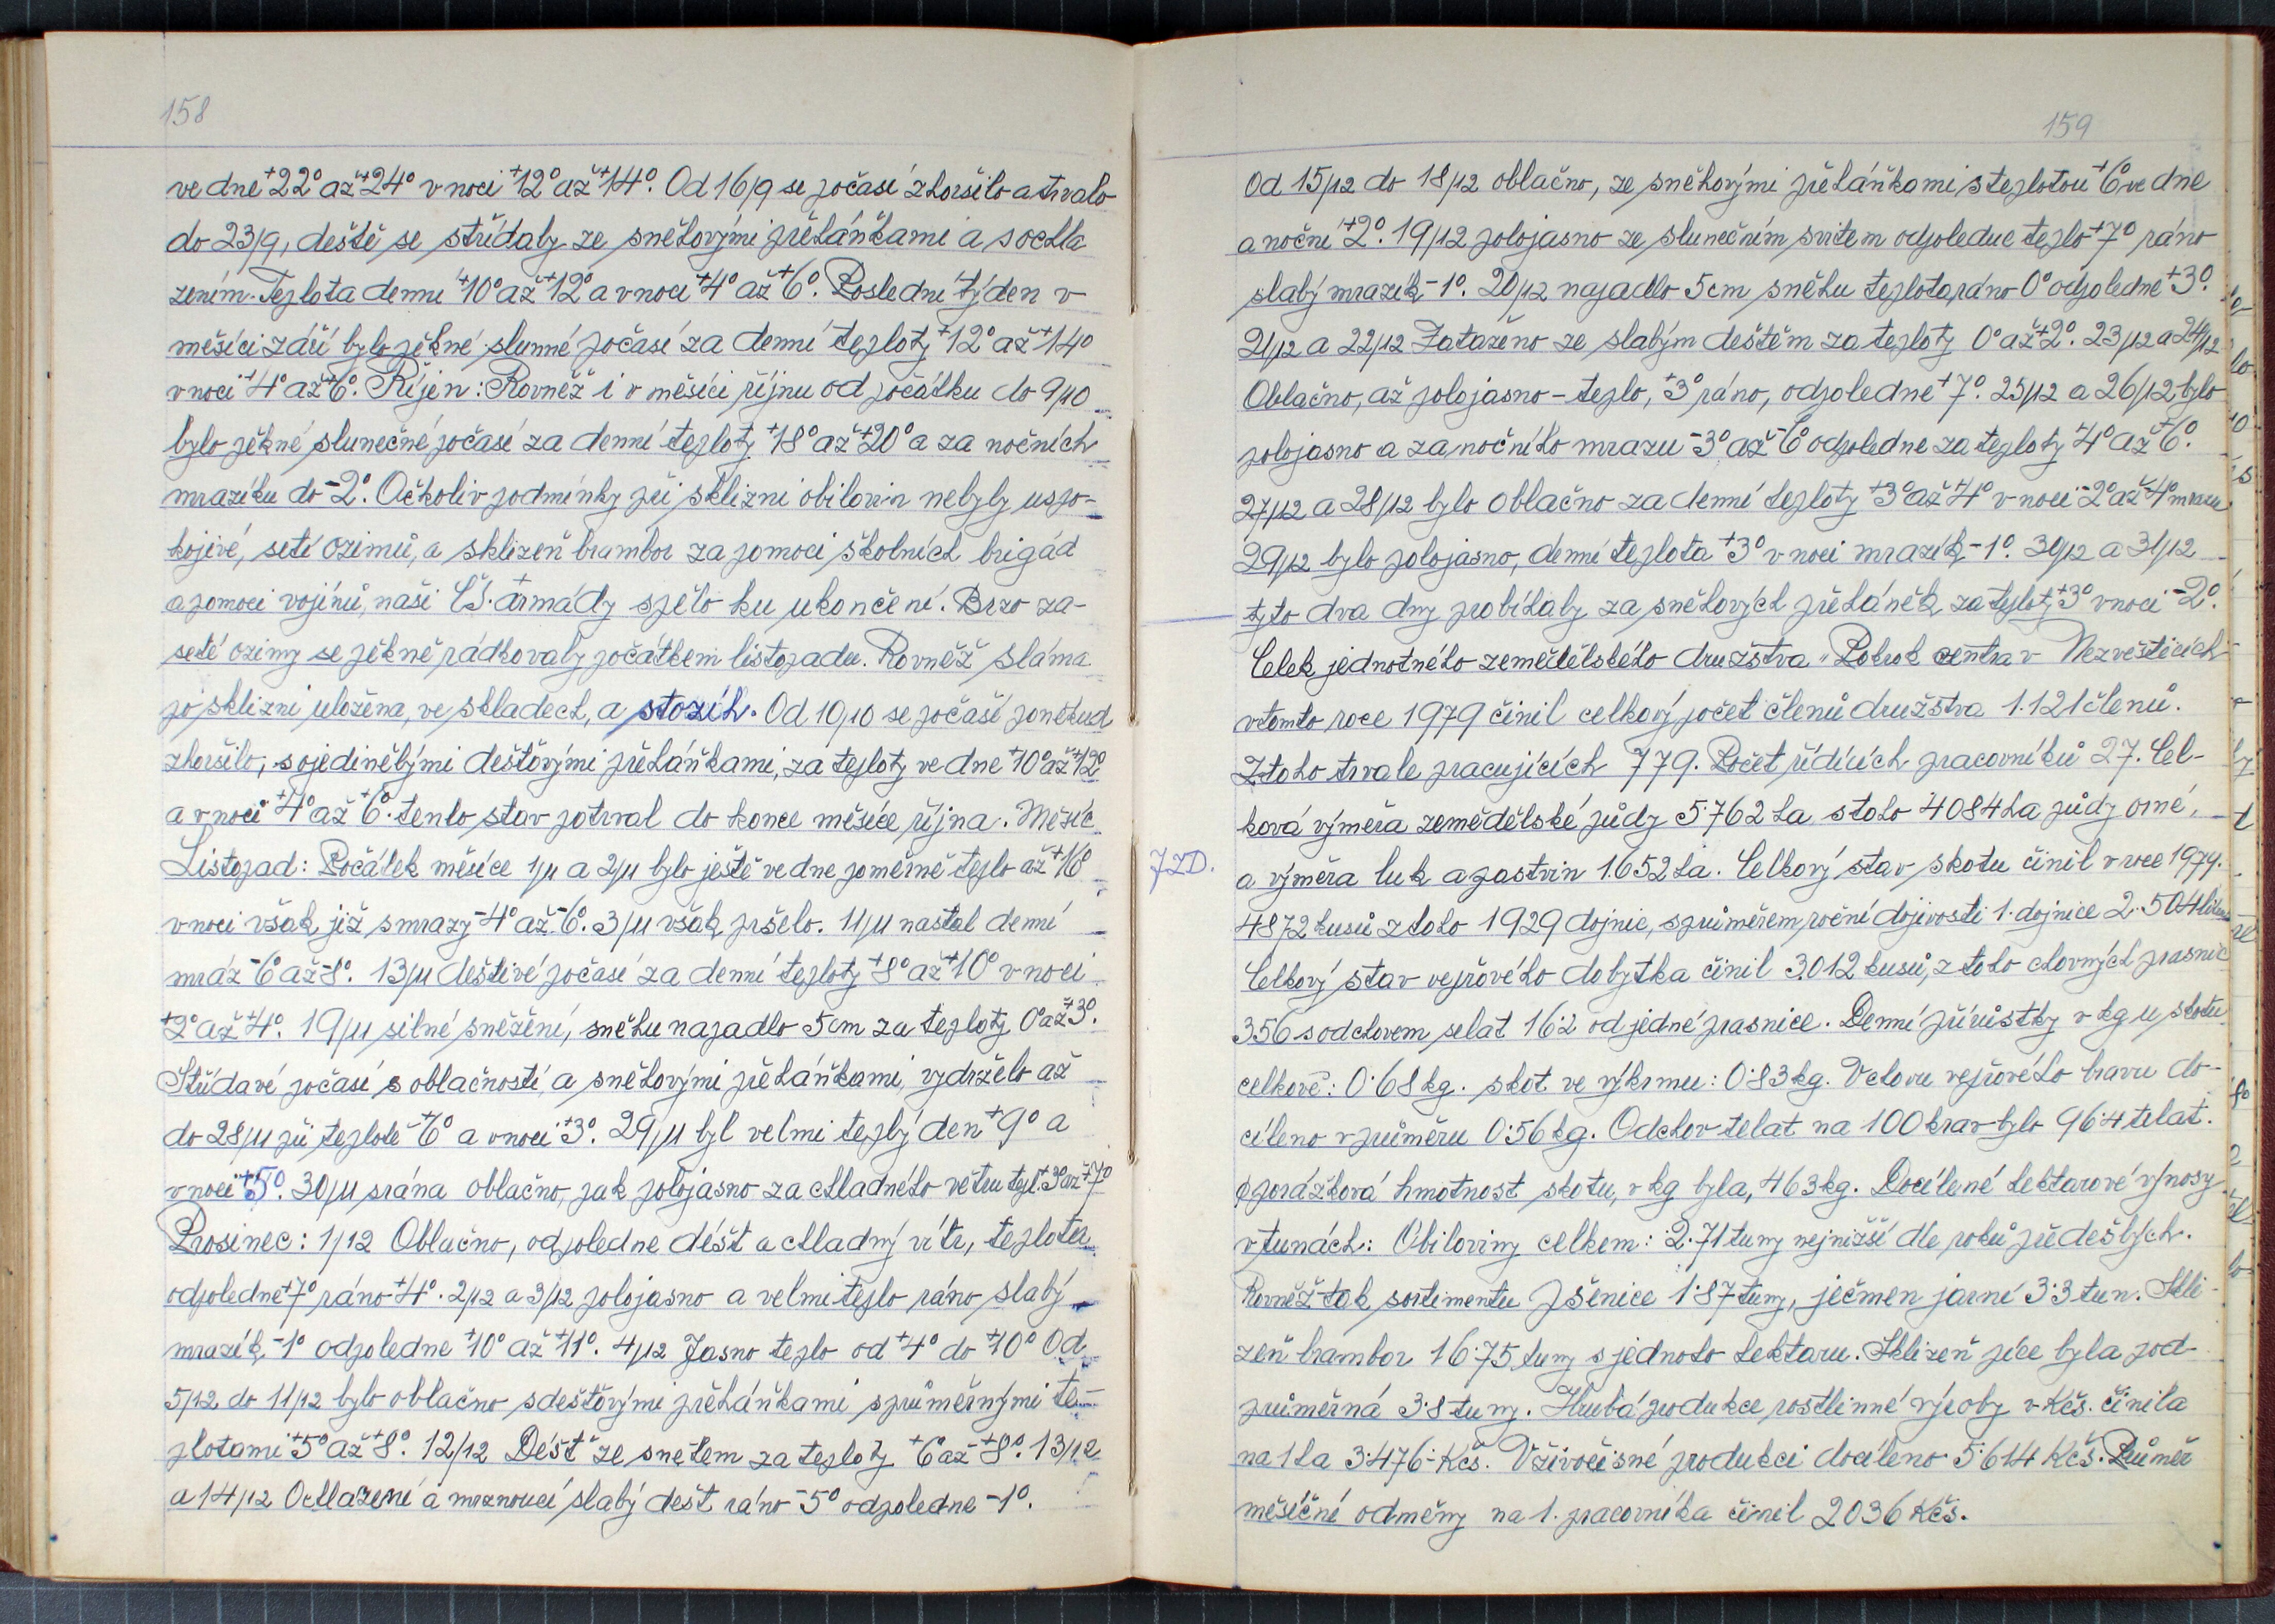 158
ve dne +22° až +24° v noci +12° až +14°. Od 16/9 se počasí zhoršilo a trvalo
do 23/9, deště se střídaly ze sněhovými přeháňkami a s ochla
zením. Teplota denní +10° až +12° a v noci +4° až +6°. Poslední týden v
měsíci září bylo pěkné slunné počasí za denní teploty +12° až +14°
v noci +4° až +6°. Říjen: Rovněž i v měsíci říjnu od počátku do 9/10
bylo pěkné slunečné počasí za denní teploty +18° až +20° a za nočních
mrazíku do -2°. Ačkoliv podmínky při sklizni obilovin nebyly uspo-
kojivé, setí ozimů, a sklizeň brambor za pomoci školních brigád
a pomoci vojínů, naší ČS. armády spělo ku ukončení. Brzo za-
seté ozimy se pěkně řádkovaly počátkem listopadu. Rovněž sláma
po sklizni uložena, ve skladech, a stozíh. Od 10/10 se počasí poněkud
zhoršilo, s ojedinělými dešťovými přeháňkami, za teploty ve dne +10° až +12°
a v noci +4° až +6°. tento stav potrval do konce měsíce října. Měsíc
Listopad: Počátek měsíce 1/11 a 2/11 bylo ještě ve dne poměrně teplo až +16°
v noci však již s mrazy -4° až -6°. 3/11 však pršelo. 11/11 nastal denní
mráz -6° až -8°. 13/11 deštivé počasí za denní teploty +8° až +10° v noci
+2° až +4°. 19/11 silné sněžení, sněhu napadlo 5cm za teploty 0° až +3°.
Střídavé počasí s oblačností, a sněhovými přeháňkami, vydrželo až
do 28/11 při teplotě +6° a v noci +3°. 29/11 byl velmi teplý den +9° a
v noci +5°. 30/11 srána oblačno, pak polojasno za chladného větru tepl. +3° až +7°
Prosinec: 1/12 Oblačno, odpoledne déšt a chladný vítr, teplota
odpoledne +7° ráno +4°. 2/12 a 3/12 polojasno a velmi teplo ráno slabý
mrazík -1° odpoledne +10° až +11°. 4/12 Jasno teplo od +4° do +10° Od
5/12 do 11/12 bylo oblačno s dešťovými přeháňkami s průměrnými te-
plotami +5° až +8°. 12/12 Déšt ze sněhem za teploty +6° až +8°. 13/12
a 14/12 Ochlazení a mrznoucí slabý dešt ráno -5° odpoledne -1°.
159
Od 15/12 do 18/12 oblačno, ze sněhovými přeháňkami s teplotou +6° ve dne
a noční +2°. 19/12 polojasno ze slunečním svitem odpoledne teplo +7° ráno
slabý mrazík -1°. 20/12 napadlo 5cm sněhu teplota ráno 0° odpoledne +3°.
21/12 a 22/12 Zataženo ze slabým deštěm za teploty 0° až +2°. 23/12 a 24/12
Oblačno, až polojasno - teplo, +3° ráno, odpoledne +7°. 25/12 a 26/12 bylo
polojasno a za nočního mrazu -3° až -6° odpoledne za teploty +4° až +6°.
27/12 a 28/12 bylo oblačno za denní teploty +3° až +4° v noci -2° až -4° mrazu
29/12 bylo polojasno, denní teplota +3° v noci mrazík -1°. 30/12 a 31/12
tyto dva dny probíhaly za sněhových přeháněk za teploty +3° v noci -2°.
Celek jednotného zemědělského družstva "Pokrok centra v Nezvěsticích
v tomto roce 1979 činil celkový počet členů družstva 1.121 členů.
Z toho trvale pracujících 779. Počet řídících pracovníků 27. Cel-
ková výměra zemědělské půdy 5762 ha stoho 4084 ha půdy orné,
JZD.
a výměra luk a pastvin 1.652 ha. Celkový stav skotu činil v roce 1979.
4872 kusů z toho 1929 dojnic, s průměrem roční dojivosti 1. dojnice 2.504 litrů
Celkový stav vepřového dobytka činil 3.012 kusů, z toho chovných prasnic
356 s odchovem selat 16.2 od jedné prasnice. Denní přírůstky v kg u skotu
celkově: 0.68 kg. skot ve výkrmu: 0.83 kg. V chovu vepřového bravu do-
cíleno v průměru 0.56 kg. Odchov telat na 100 krav bylo 96.4 telat.
∅ porážková hmotnost skotu, v kg byla, 463 kg. Docílené hektarové výnosy
v tunách: Obiloviny celkem: 2.71 tuny nejnižší dle roků předešlých.
Rovněž tak sortimentu pšenice 1.87 tuny, ječmen jarní 3.3 tun. Skli-
zeň brambor 16.75 tuny s jednoho hektaru. Sklizeň píce byla pod-
průměrná 3.8 tuny. Hrubá produkce rostlinné výroby v Kčs. činila
na 1 ha 3.476- Kčs. V živočišné produkci docíleno 5.614 Kčs. Průměr
měsíční odměny na 1. pracovníka činil 2036 Kčs.